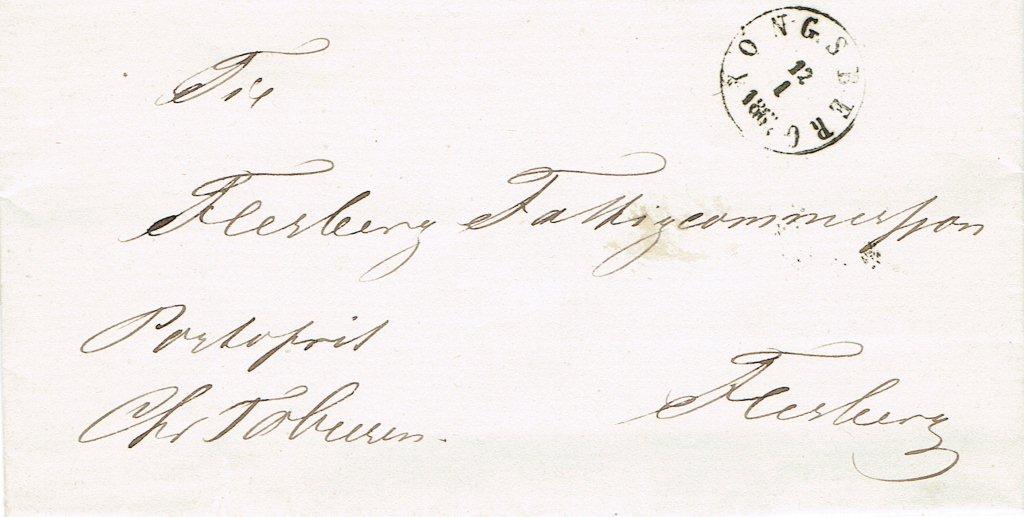 KONGSBERG
12
1
Til
Flesberg Fattigcommission
Portofrit
Chr
Flesberg